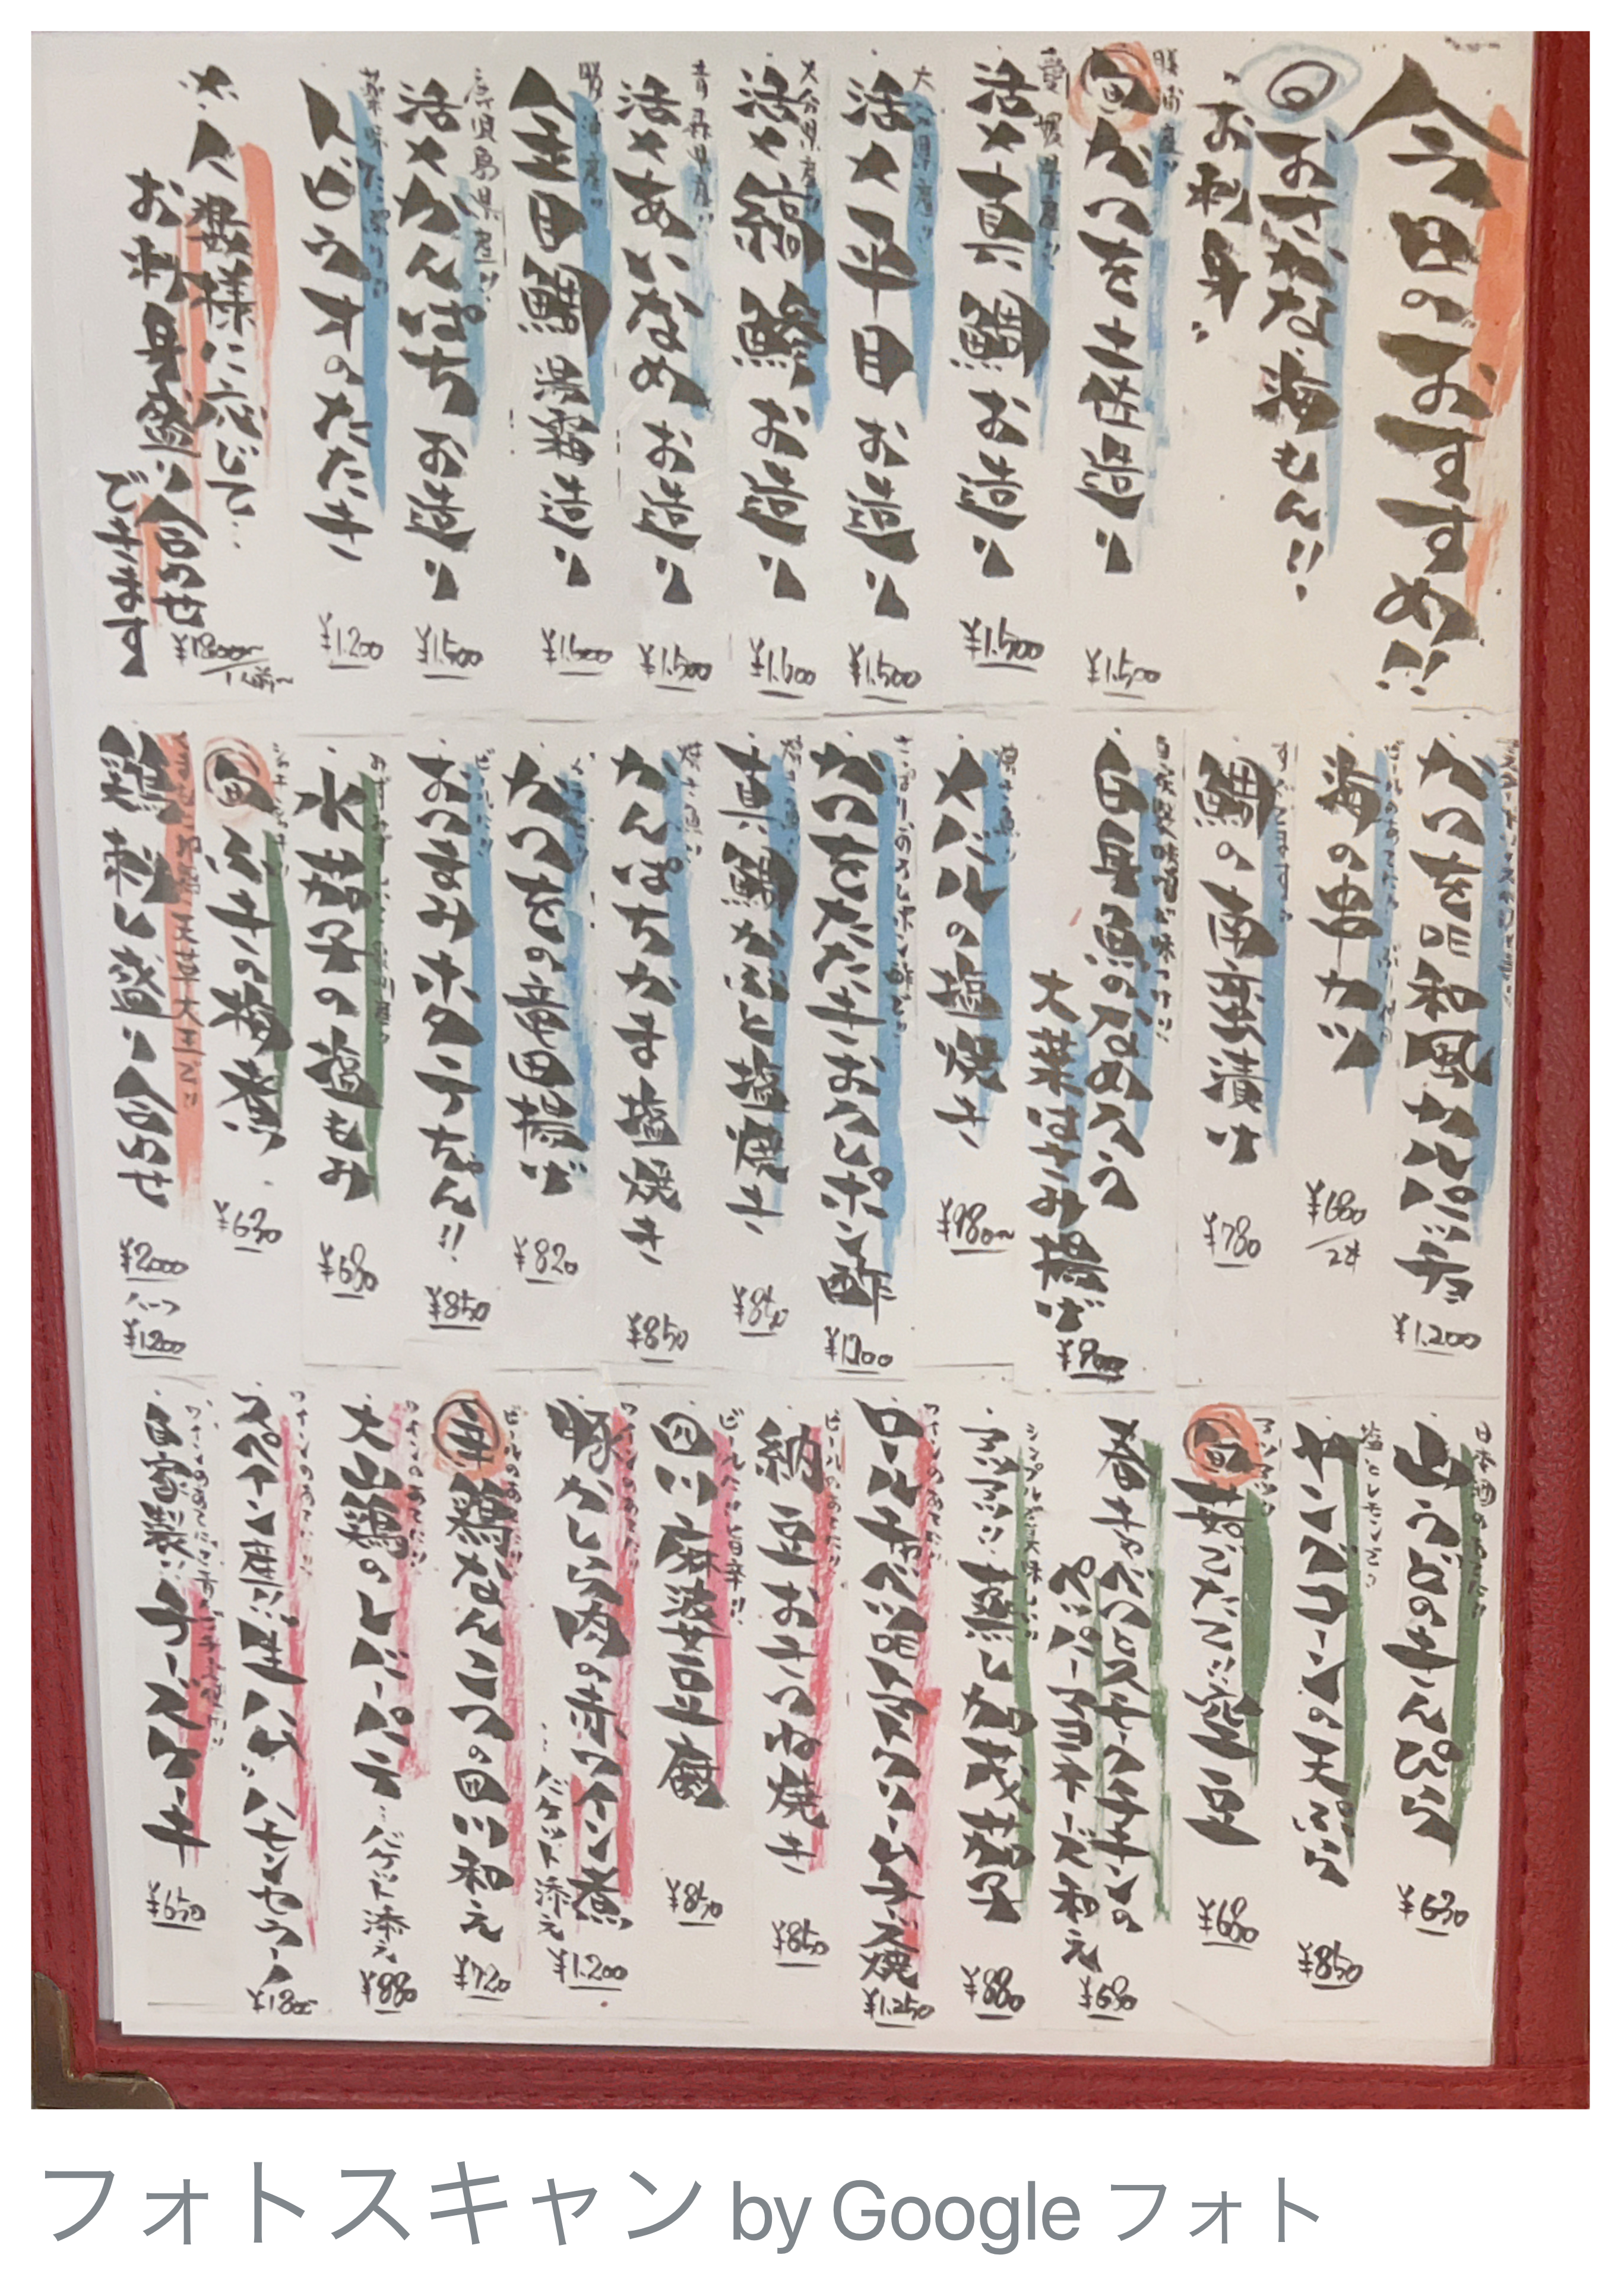 今日のおすすめ!!
おさかな海もん!!
お刺身
勝浦産!!
旬 かつを土佐造り
¥1.500
愛媛県産!!
活〆真鯛お造り
¥1.500
大分県産!!
活〆平目お造り
¥1.500
大分県産!!
活〆縞鯵お造り
活〆あいなめお造り
¥1.500
金目鯛湯霜造り
鹿児島県産!!
活〆かんぱちお造り
¥1.500
トビウオのたたき
¥1.200
人数様に応じて…
お刺身盛り合わせ
できます
かつを昆和風カルパッチョ
¥1.200
海の串カツ
鯛の南蛮漬け
¥780
白身魚のなめろう
大葉はさみ揚げ
¥900
メバルの塩焼き
かつをたたきおろしポン酢
真鯛かぶと塩焼き
¥850
かんぱちかま塩焼き
¥850
かつをの竜田揚げ
¥820
おつまみホタテちゃん!!
¥850
水茄子の塩もみ
¥680
旬 ふきの梅煮
¥630
天草大王
鶏刺し盛り合わせ
¥2000
ハーフ
¥1200
山うどのきんぴら
¥630
ヤングコーンの天ぷら
¥850
旬 焼きたて空豆
¥680
春キャベツとスナップエンドウの
ペッパーマヨネーズ和え
¥680
蒸し加茂茄子
¥880
ワインのあてに!!
ロールキャベツのクリームチーズ焼
¥1.250
ビールのあてに!!
納豆おきつね焼き
¥850
四川麻婆豆腐
¥850
ワインのあてに!!
豚かしら肉の赤ワイン煮
…バゲット添え
¥1.200
ビールのあてに!!
辛 鶏なんこつの四川和え
¥720
ワインのあてに!!
大山鶏のレバーパテ…バゲット添え
¥880
スペイン産生ハム ハモンセラーノ
自家製チーズケーキ
¥650
フォトスキャン by Google フォト